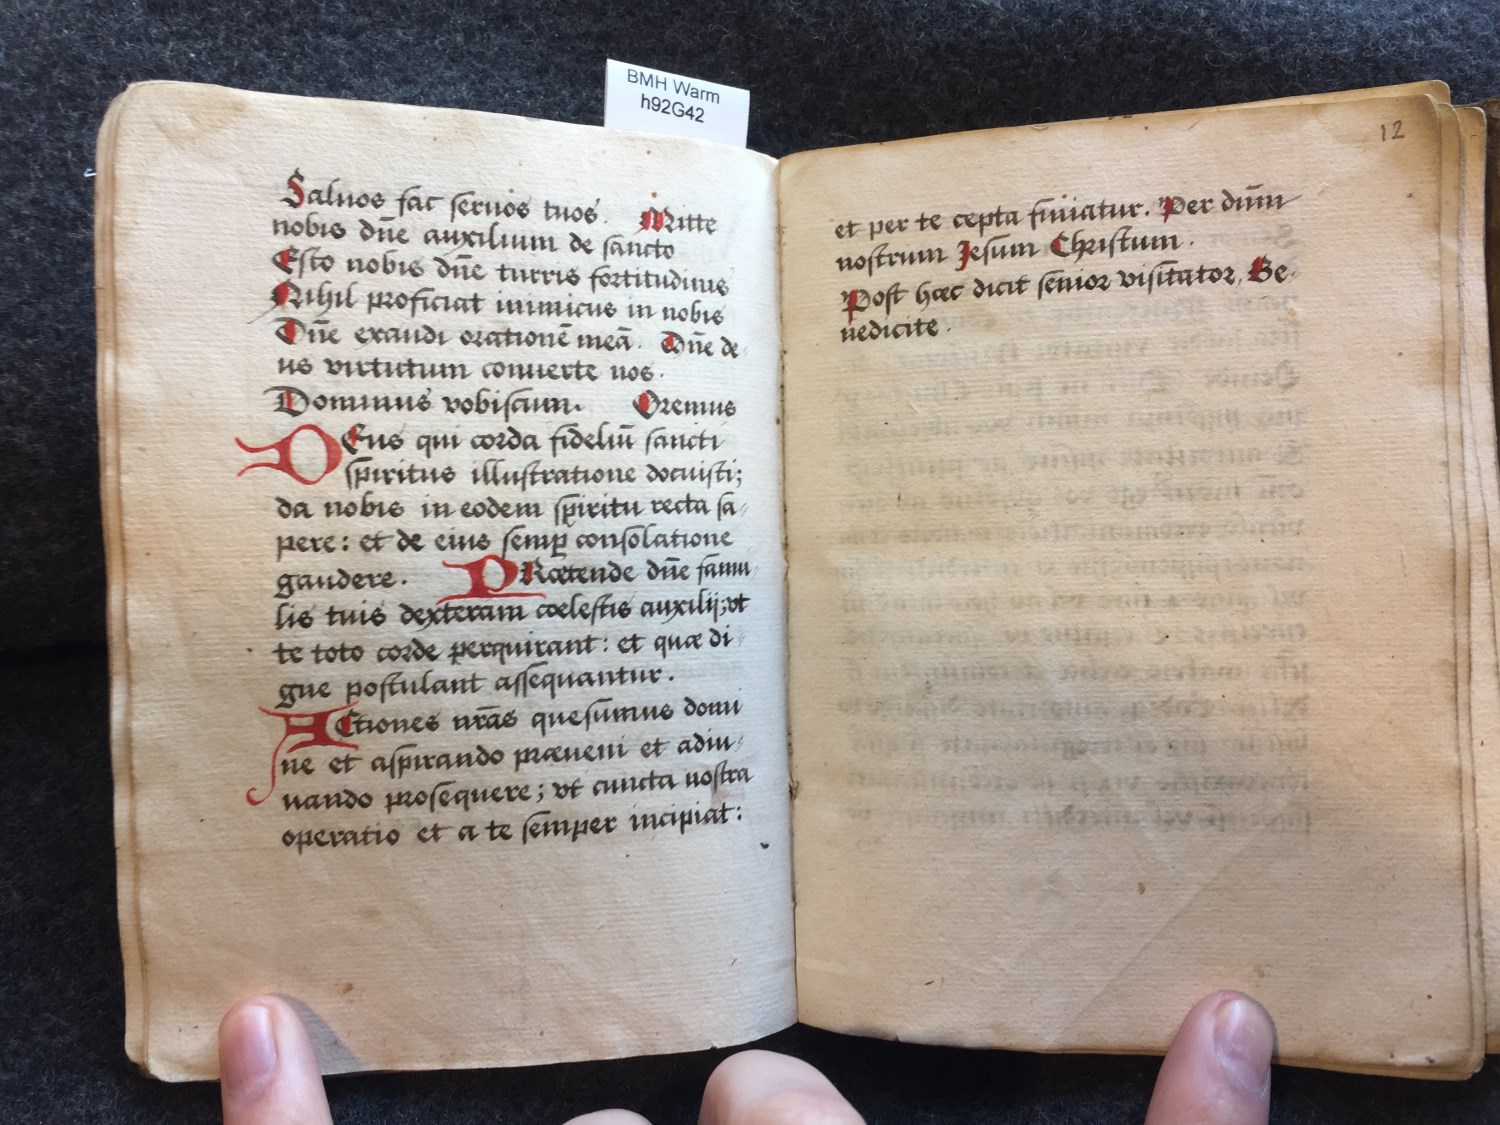 BMH Warm
h92G42
Saluos fac seruos tuos. Mitte
nobis dn̄e auxilium de sancto
Esto nobis dn̄e turris fortitudinis
Nihil proficiat inimicus in nobis
Dn̄e exaudi orationē meā. Dn̄e de-
us virtutum conuerte nos.
Dominus vobiscum. Oremus
DEus qui corda fideliū sancti
spiritus illustratione docuisti;
da nobis in eodem spiritu recta sa-
pere: et de eius semꝑ consolatione
gaudere. PRætende dn̄e famu-
lis tuis dexteram cœlestis auxilij; vt
te toto corde perquirant: et quæ di-
gne postulant assequantur.
ACtiones nr̄as quesumus domi
ne et aspirando præueni et adiu-
uando prosequere; vt cuncta nostra
operatio et a te semper incipiat:
12
et per te cepta finiatur. Per dūm
nostrum Jesum Christum.
Post hæc dicit senior visitator, Be-
nedicite.